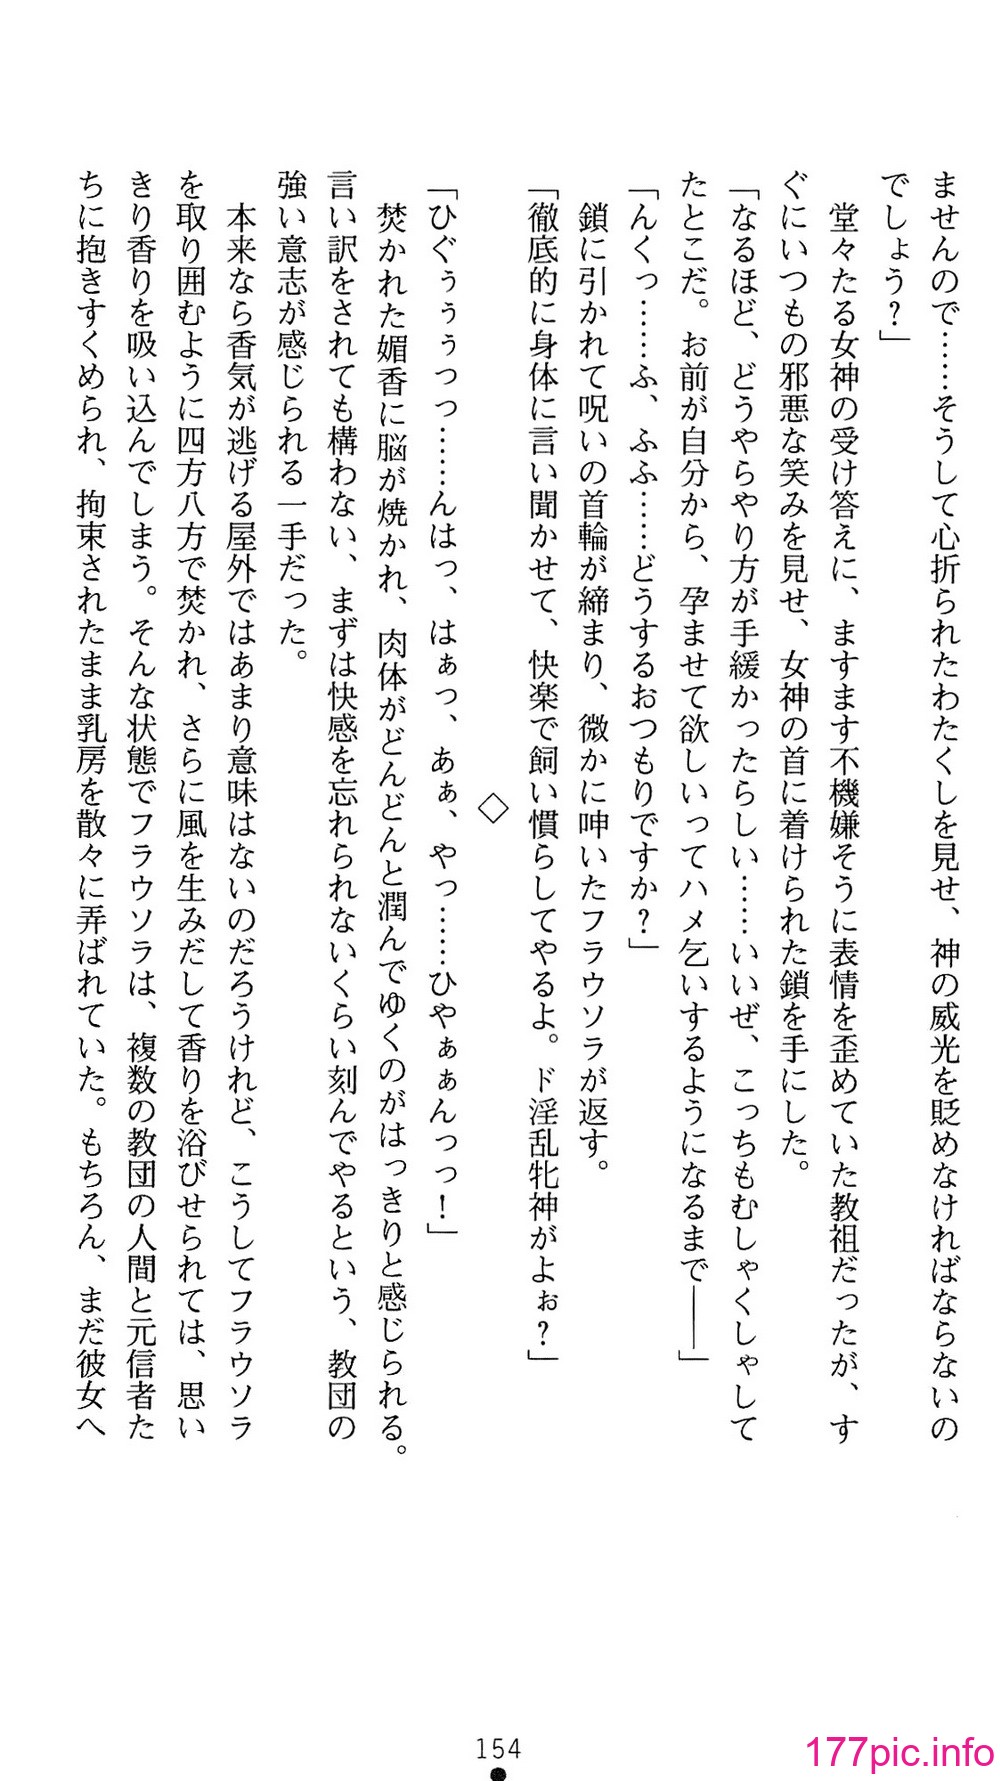 ませんので……そうして心折られたわたくしを見せ、神の威光を貶めなければならないの
でしょう？」
　堂々たる女神の受け答えに、ますます不機嫌そうに表情を歪めていた教祖だったが、す
ぐにいつもの邪悪な笑みを見せ、女神の首に着けられた鎖を手にした。
「なるほど、どうやらやり方が手緩かったらしい……いいぜ、こっちもむしゃくしゃして
たとこだ。お前が自分から、孕ませて欲しいってハメ乞いするようになるまで――」
「んくっ……ふ、ふふ……どうするおつもりですか？」
　鎖に引かれて呪いの首輪が締まり、微かに呻いたフラウソラが返す。
「徹底的に身体に言い聞かせて、快楽で飼い慣らしてやるよ。ド淫乱牝神がよぉ？」
◇
「ひぐぅぅぅっっ……んはっ、はぁっ、あぁ、やっ……ひゃぁぁんっっ！」
　焚かれた媚香に脳が焼かれ、肉体がどんどんと潤んでゆくのがはっきりと感じられる。
言い訳をされても構わない、まずは快感を忘れられないくらい刻んでやるという、教団の
強い意志が感じられる一手だった。
　本来なら香気が逃げる屋外ではあまり意味はないのだろうけれど、こうしてフラウソラ
を取り囲むように四方八方で焚かれ、さらに風を生みだして香りを浴びせられては、思い
きり香りを吸い込んでしまう。そんな状態でフラウソラは、複数の教団の人間と元信者た
ちに抱きすくめられ、拘束されたまま乳房を散々に弄ばれていた。もちろん、まだ彼女へ
154
177pic.info